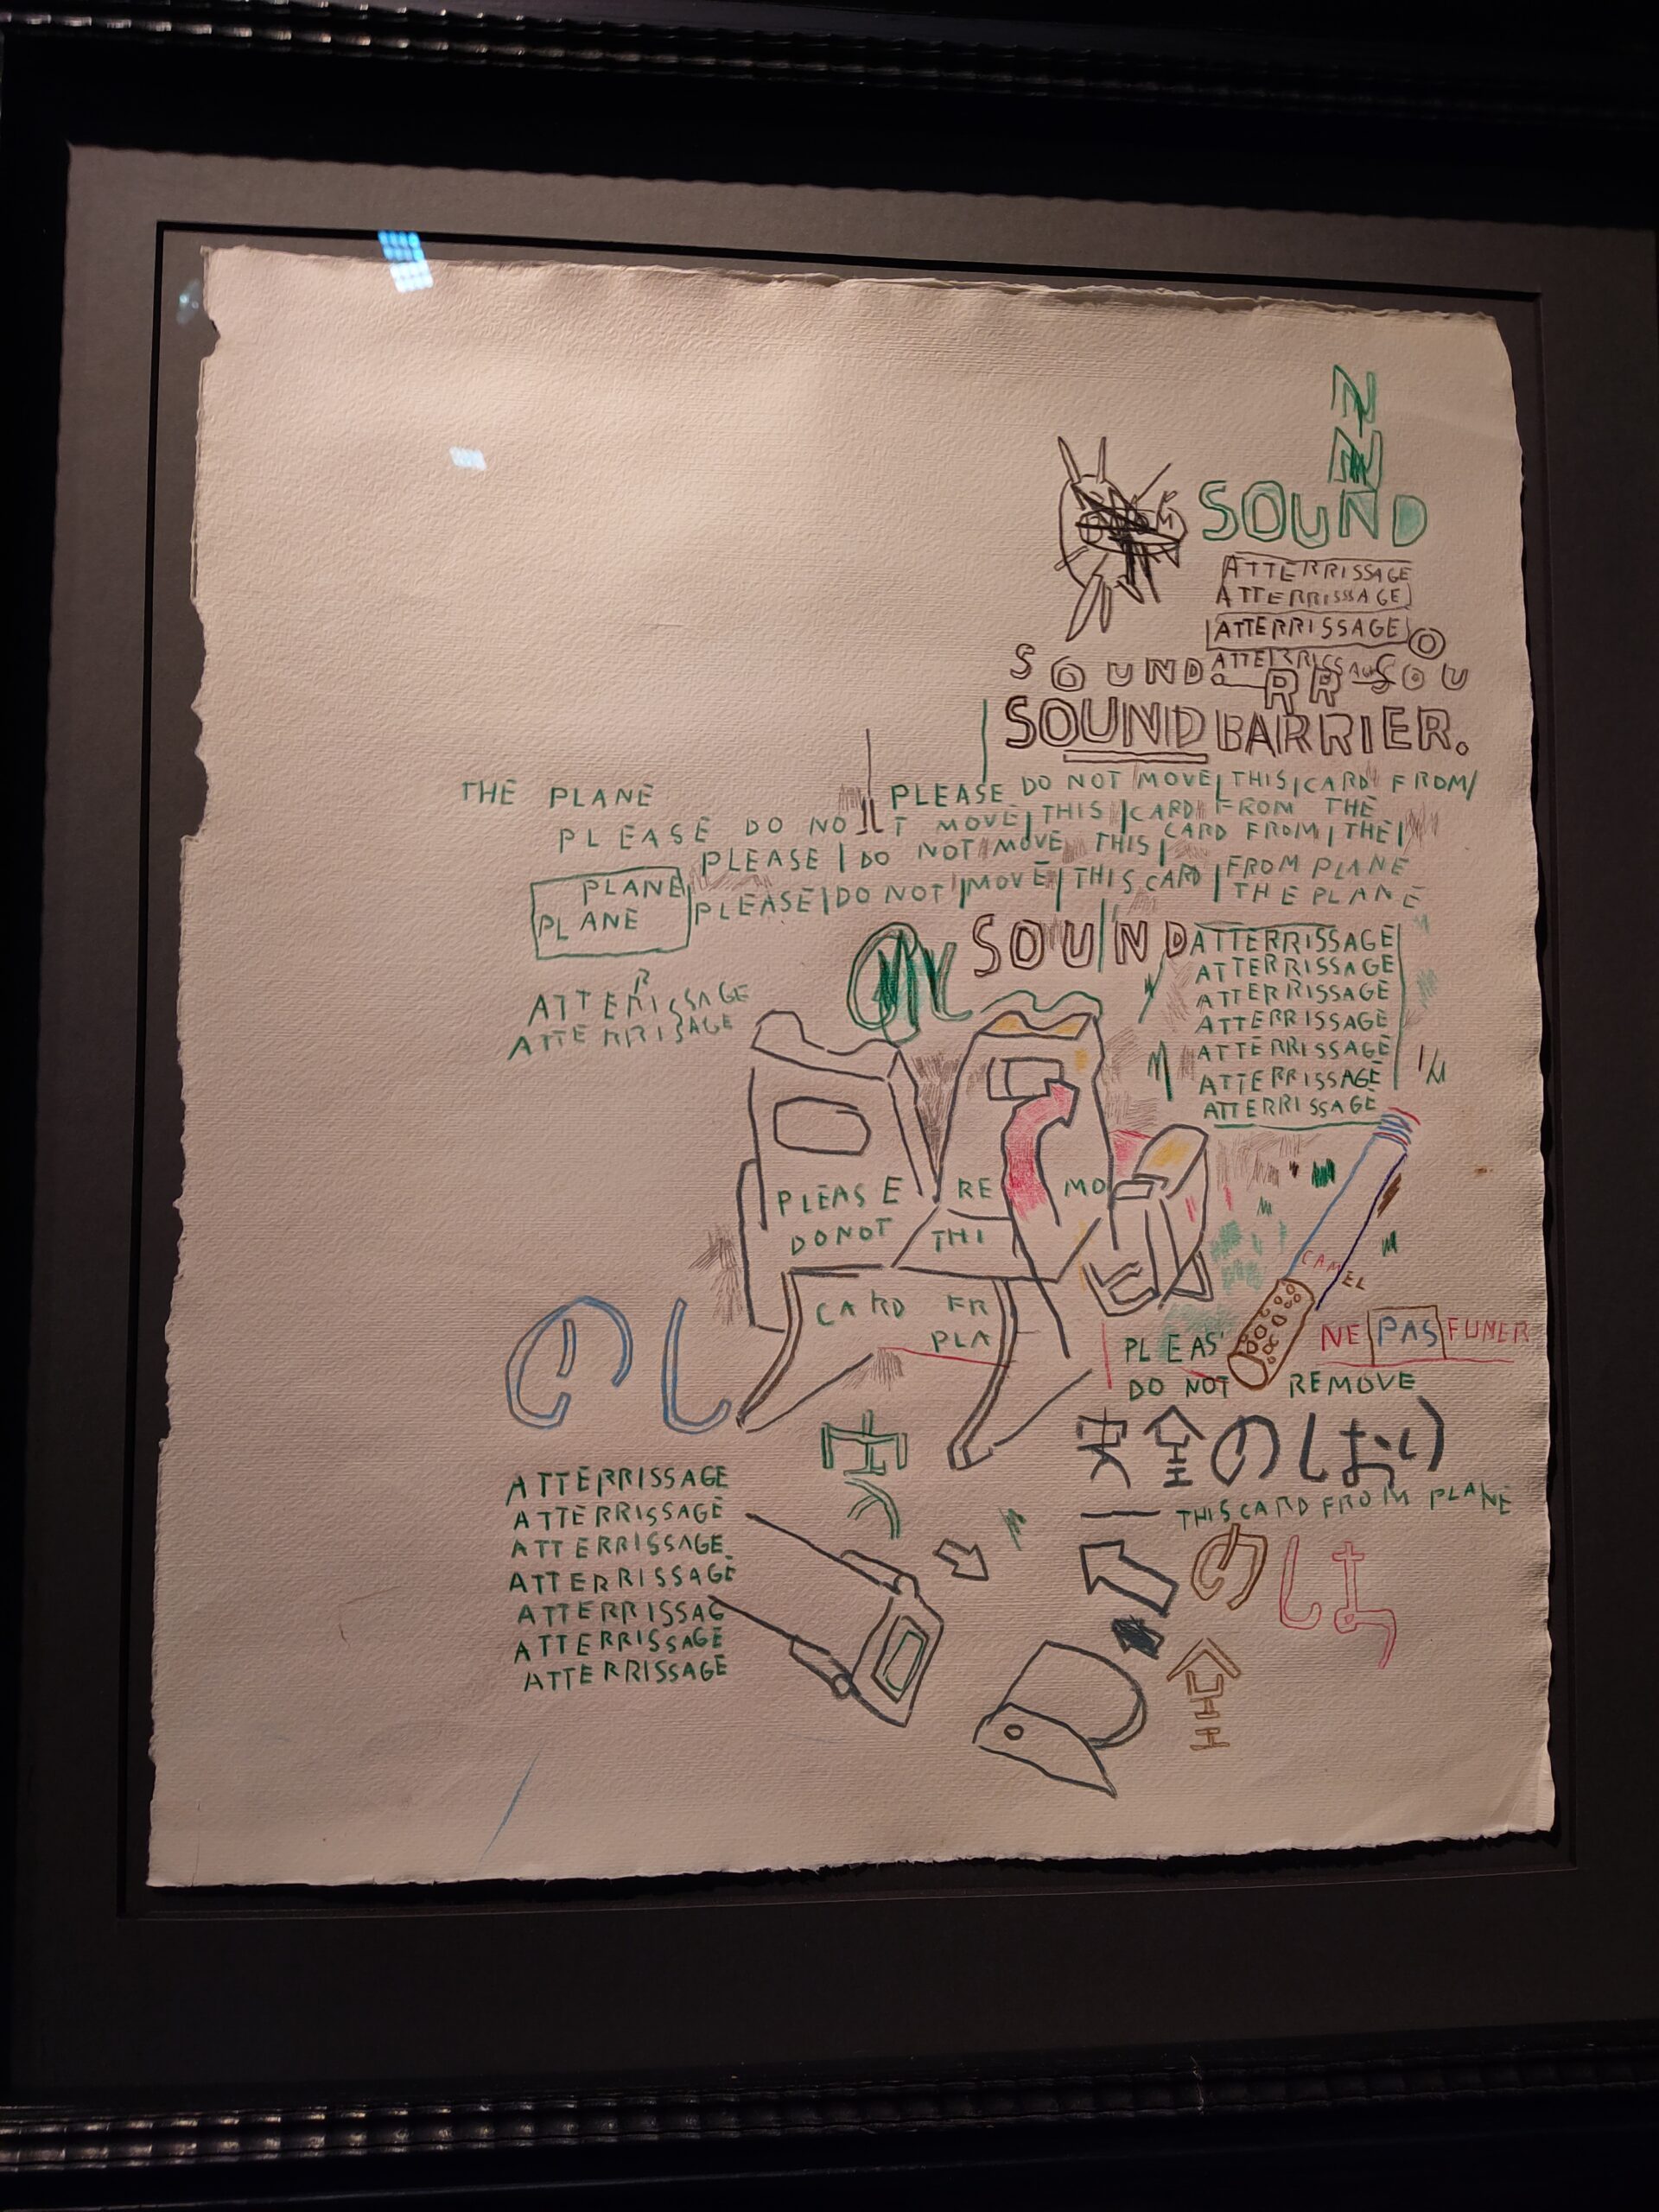 N
N
SOUND
ATTERRISSAGE
ATTERRISSSAGE
ATTERRISSAGE
O
SOUND. ATTERRISSAGE SOU
RR
SOUND BARRIER.
THE PLANE
PLEASE DO NOT MOVE THIS CARD FROM
PLEASE DO NOT MOVE THIS CARD FROM THE
PLEASE DO NOT MOVE THIS CARD FROM THE
PLANE PLEASE DO NOT MOVE THIS CARD FROM PLANE
PLANE THE PLANE
SOUND
ATTERRISSAGE
ATTERRISSAGE
ATTERRISSAGE
ATTERRISSAGE
ATTERRISSAGE
ATTERRISSAGE
ATTERRISSAGE
R
ATTERISSAGE
ATTERRISSAGE
PLEASE RE MO
DONOT THI
CARD FR
PLA
CAMEL
NE PAS FUMER
PLEAS'
DO NOT REMOVE
のし
安
安全のしおり
THIS CARD FROM PLANE
のしお
全
ATTERRISSAGE
ATTERRISSAGE
ATTERRISSAGE
ATTERRISSAGE
ATTERRISSAG
ATTERRISSAGE
ATTERRISSAGE